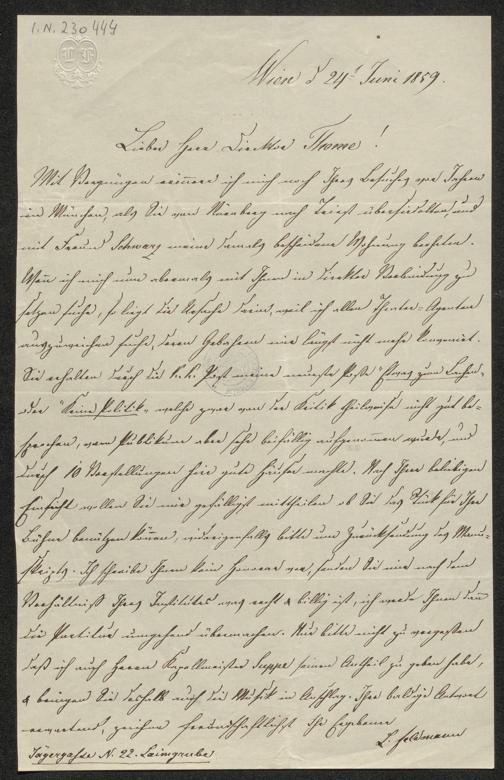 I.N. 230444
Wien d 24t Juni 1859.
Lieber Herr Direktor Thome!
Mit Vergnügen erinnere ich mich noch Ihres Besuches vor Jahren
in München, als Sie von Nürnberg nach Triest übersiedelten, und
mit Freund Schwarz meine damals bescheidene Wohnung beehrten.
Wenn ich mich nun abermals mit Ihnen in direkte Verbindung zu
setzen suche, so liegt die Ursache darin, weil ich allen Theater-Agenten
auszuweichen suche, deren Gebahren mir längst nicht mehr konvenirt.
Sie erhalten durch die k.k. Post meine neueste Posse "Etwas zum Lachen"
oder "Keine Politik" welche zwar von der Kritik theilweise nicht gut be-
sprochen, vom Publikum aber sehr beifällig aufgenommen wurde, und
durch 10 Vorstellungen hier gute Häuser machte. Nach Ihrer beliebigen
Einsicht wollen Sie mir gefälligst mittheilen ob Sie das Stück für Ihre
Bühne benützen können, widrigenfalls bitte um Zurücksendung des Manu-
skripts. Ich schreibe Ihnen kein Honorar vor, senden Sie mir nach dem
Verhältniß Ihres Institutes was recht & billig ist, ich werde Ihnen dann
die Partitur umgehend übermachen. Nur bitte nicht zu vergessen
daß ich auch Herrn Kapellmeister Suppe seinen Antheil zu geben habe,
& bringen Sie deshalb auch die Musik in Anschlag. Ihre baldige Antwort
erwartend, zeichne freundschaftlichst Ihr Ergebener
L. Feldmann
Jägergasse N. 22. Laimgrube